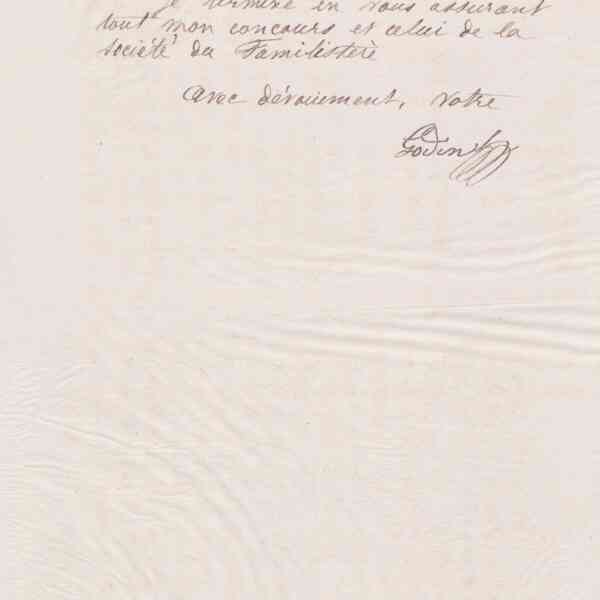 je termine en vous assurant
tout mon concours et celui de la
société du Familistère
Avec dévouement, votre
Godin